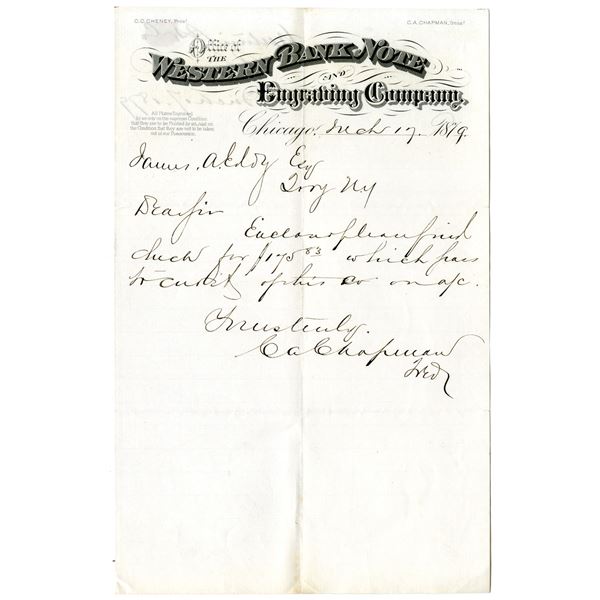 C.C. CHENEY, Prest
C.A. CHAPMAN, Treast
Office of
THE
WESTERN BANK NOTE
AND
Engraving Company,
All Plates Engraved
by us only on the express Condition
that they are to be Printed by us, and on
the Condition that they are not to be taken
out of our Possession.
Chicago, Mch 17 1879.
James, A Eddy Esq
Troy NY
Dear Sir
Enclosed please find
check for $175 83 which pass
to credit of this co on a/c.
Yours truly.
C A Chapman
Tred